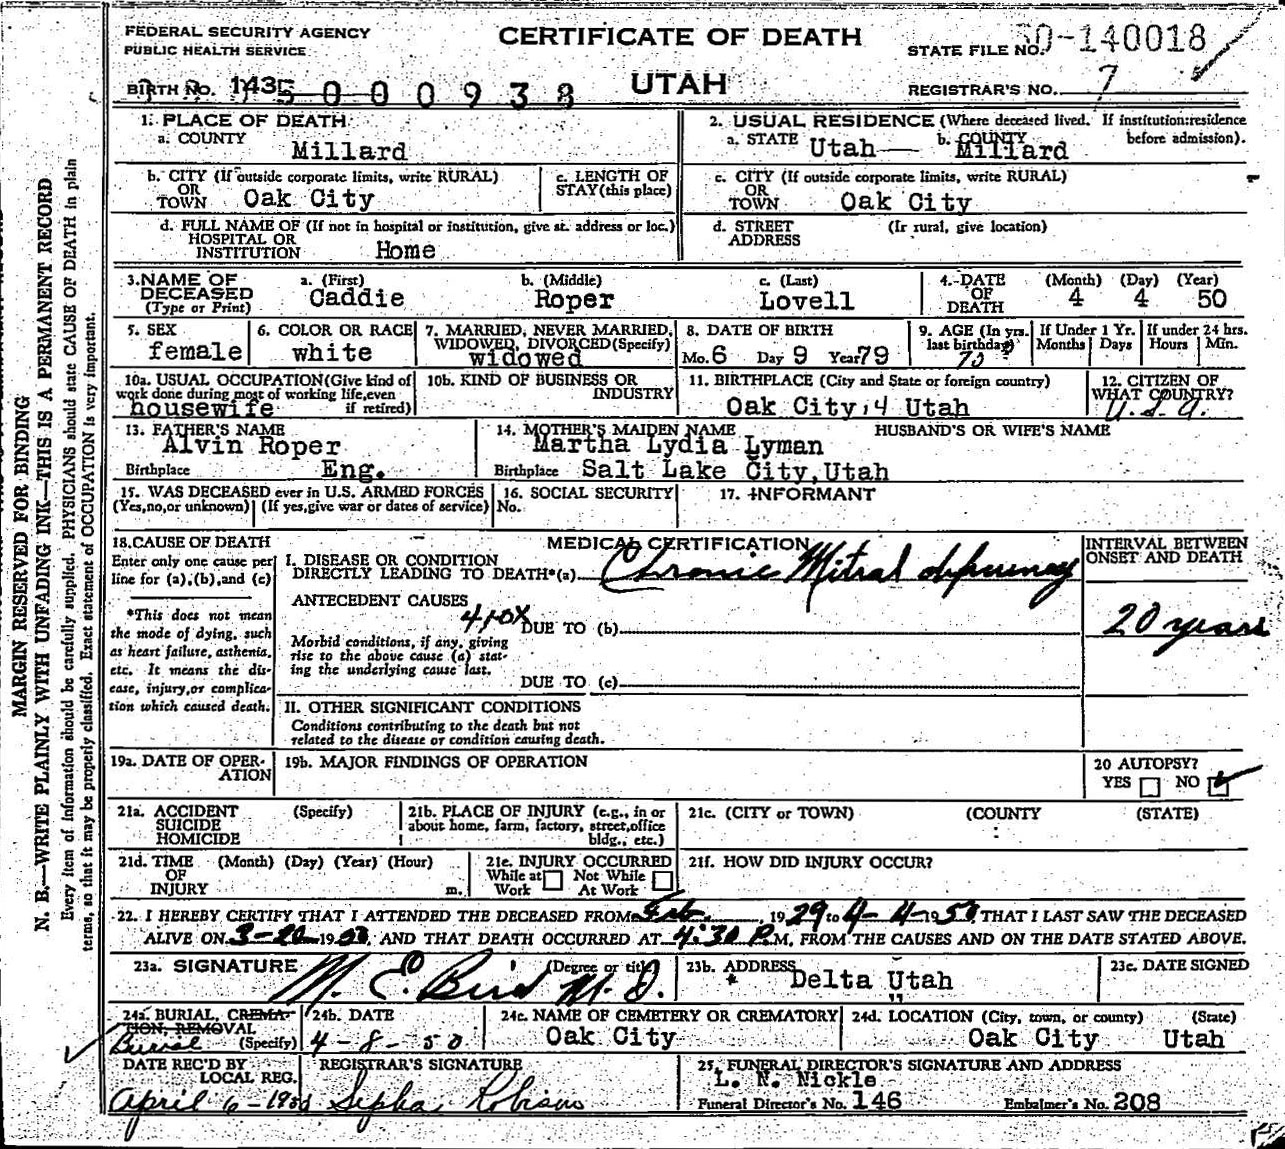 FEDERAL SECURITY AGENCY
PUBLIC HEALTH SERVICE
CERTIFICATE OF DEATH
UTAH
STATE FILE NO. 50-140018
REGISTRAR'S NO. 7
BIRTH NO. 1435 000938
1. PLACE OF DEATH
a. COUNTY
Millard
2. USUAL RESIDENCE (Where deceased lived. If institution: residence before admission).
a. STATE Utah b. COUNTY Millard
b. CITY (If outside corporate limits, write RURAL)
OR
TOWN Oak City
c. LENGTH OF
STAY (this place)
c. CITY (If outside corporate limits, write RURAL)
OR
TOWN Oak City
d. FULL NAME OF (If not in hospital or institution, give st. address or loc.)
HOSPITAL OR
INSTITUTION Home
d. STREET (If rural, give location)
ADDRESS
3. NAME OF
DECEASED
(Type or Print)
a. (First) b. (Middle) c. (Last)
Caddie Roper Lovell
4. DATE
OF
DEATH
(Month) (Day) (Year)
4 4 50
5. SEX
female
6. COLOR OR RACE
white
7. MARRIED, NEVER MARRIED,
WIDOWED, DIVORCED (Specify)
widowed
8. DATE OF BIRTH
Mo. 6 Day 9 Year 79
9. AGE (In yrs.
last birthday)
70
If Under 1 Yr.
Months Days
If under 24 hrs.
Hours Min.
10a. USUAL OCCUPATION (Give kind of
work done during most of working life, even
if retired)
housewife
10b. KIND OF BUSINESS OR
INDUSTRY
11. BIRTHPLACE (City and State or foreign country)
Oak City, 4 Utah
12. CITIZEN OF
WHAT COUNTRY?
U.S.A.
13. FATHER'S NAME
Alvin Roper
Birthplace Eng.
14. MOTHER'S MAIDEN NAME HUSBAND'S OR WIFE'S NAME
Martha Lydia Lyman
Birthplace Salt Lake City, Utah
15. WAS DECEASED ever in U.S. ARMED FORCES
(Yes, no, or unknown) (If yes, give war or dates of service)
16. SOCIAL SECURITY
No.
17. INFORMANT
18. CAUSE OF DEATH
Enter only one cause per
line for (a), (b), and (c)
*This does not mean
the mode of dying, such
as heart failure, asthenia,
etc. It means the dis-
ease, injury, or complica-
tion which caused death.
MEDICAL CERTIFICATION
I. DISEASE OR CONDITION
DIRECTLY LEADING TO DEATH*(a) Chronic Mitral
ANTECEDENT CAUSES
410X
DUE TO (b)
Morbid conditions, if any, giving
rise to the above cause (a) stat-
ing the underlying cause last.
DUE TO (c)
II. OTHER SIGNIFICANT CONDITIONS
Conditions contributing to the death but not
related to the disease or condition causing death.
INTERVAL BETWEEN
ONSET AND DEATH
20 years
19a. DATE OF OPER-
ATION
19b. MAJOR FINDINGS OF OPERATION
20 AUTOPSY?
YES NO
21a. ACCIDENT (Specify)
SUICIDE
HOMICIDE
21b. PLACE OF INJURY (e.g., in or
about home, farm, factory, street, office
bldg., etc.)
21c. (CITY or TOWN) (COUNTY) (STATE)
21d. TIME (Month) (Day) (Year) (Hour)
OF
INJURY m.
21e. INJURY OCCURRED
While at Not While
Work At Work
21f. HOW DID INJURY OCCUR?
22. I HEREBY CERTIFY THAT I ATTENDED THE DECEASED FROM Feb. 1929 to 4-4-1950, THAT I LAST SAW THE DECEASED
ALIVE ON 3-20-1950, AND THAT DEATH OCCURRED AT 4:30 P.M, FROM THE CAUSES AND ON THE DATE STATED ABOVE.
23a. SIGNATURE (Degree or title)
M. E. Bird M. D.
23b. ADDRESS
Delta Utah
23c. DATE SIGNED
24a. BURIAL, CREMA-
TION, REMOVAL
(Specify)
Burial
24b. DATE
4-8-50
24c. NAME OF CEMETERY OR CREMATORY
Oak City
24d. LOCATION (City, town, or county) (State)
Oak City Utah
DATE REC'D BY
LOCAL REG.
April 6-1950
REGISTRAR'S SIGNATURE
25. FUNERAL DIRECTOR'S SIGNATURE AND ADDRESS
L. N. Nickle
Funeral Director's No. 146 Embalmer's No. 208
MARGIN RESERVED FOR BINDING
N. B.—WRITE PLAINLY WITH UNFADING INK—THIS IS A PERMANENT RECORD
Every item of information should be carefully supplied. PHYSICIANS should state CAUSE OF DEATH in plain
terms, so that it may be properly classified. Exact statement of OCCUPATION is very important.